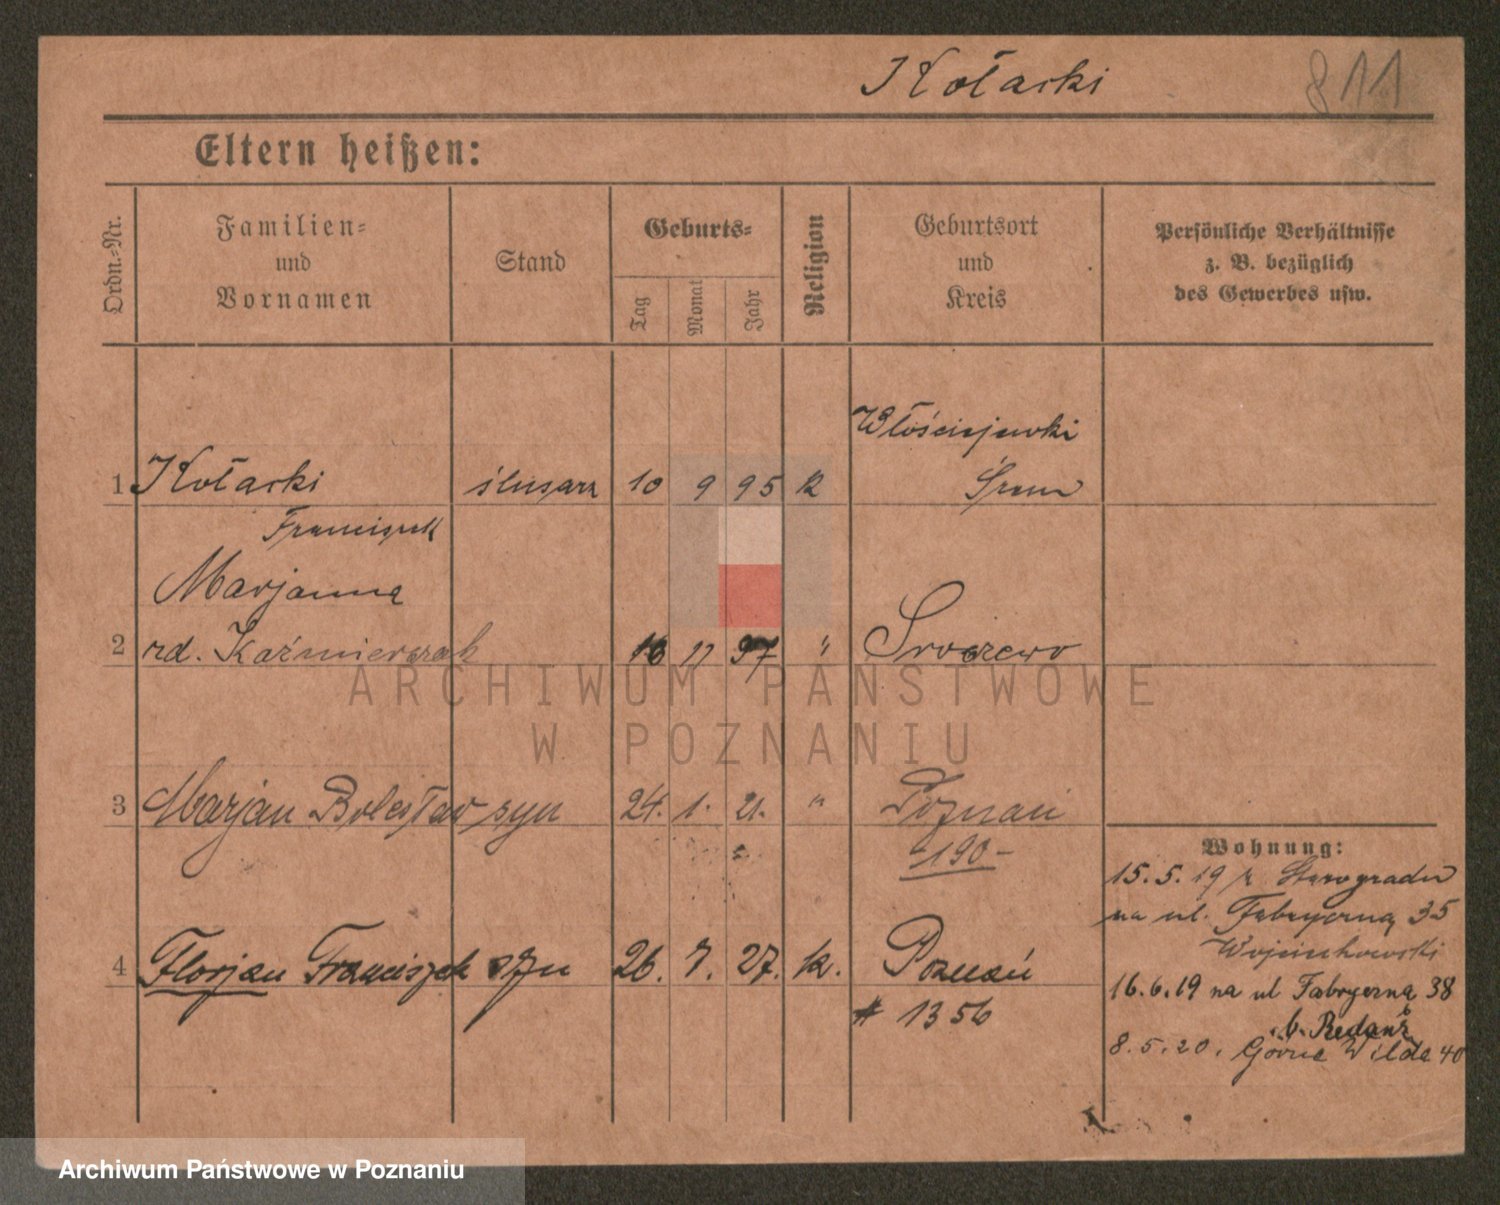 Kołacki 811
Eltern heißen:
Ordn.-Nr.
Familien-
und
Vornamen
Stand
Geburts-
Tag
Monat
Jahr
Religion
Geburtsort
und
Kreis
Persönliche Verhältnisse
z. B. bezüglich
des Gewerbes usw.
Włościejewki
1 Kołacki ślusarz 10 9 95 k Śrem
Franciszek
Marjanna
2 rd. Kaźmierczak 16 11 97 "
3 Marjan Bolesław syn 24. 1. 21. " Poznań
-190-
4 Florjan Franciszek syn 26. 7. 27. k. Poznań
# 1356
Wohnung:
15.5.19 z Starogradu
na ul. Fabryczną 35
Wojciechowski
16.6.19 na ul Fabryczną 38
b. Redanz
8.5.20. Górna Wilda 40
ARCHIWUM PAŃSTWOWE
W POZNANIU
Archiwum Państwowe w Poznaniu